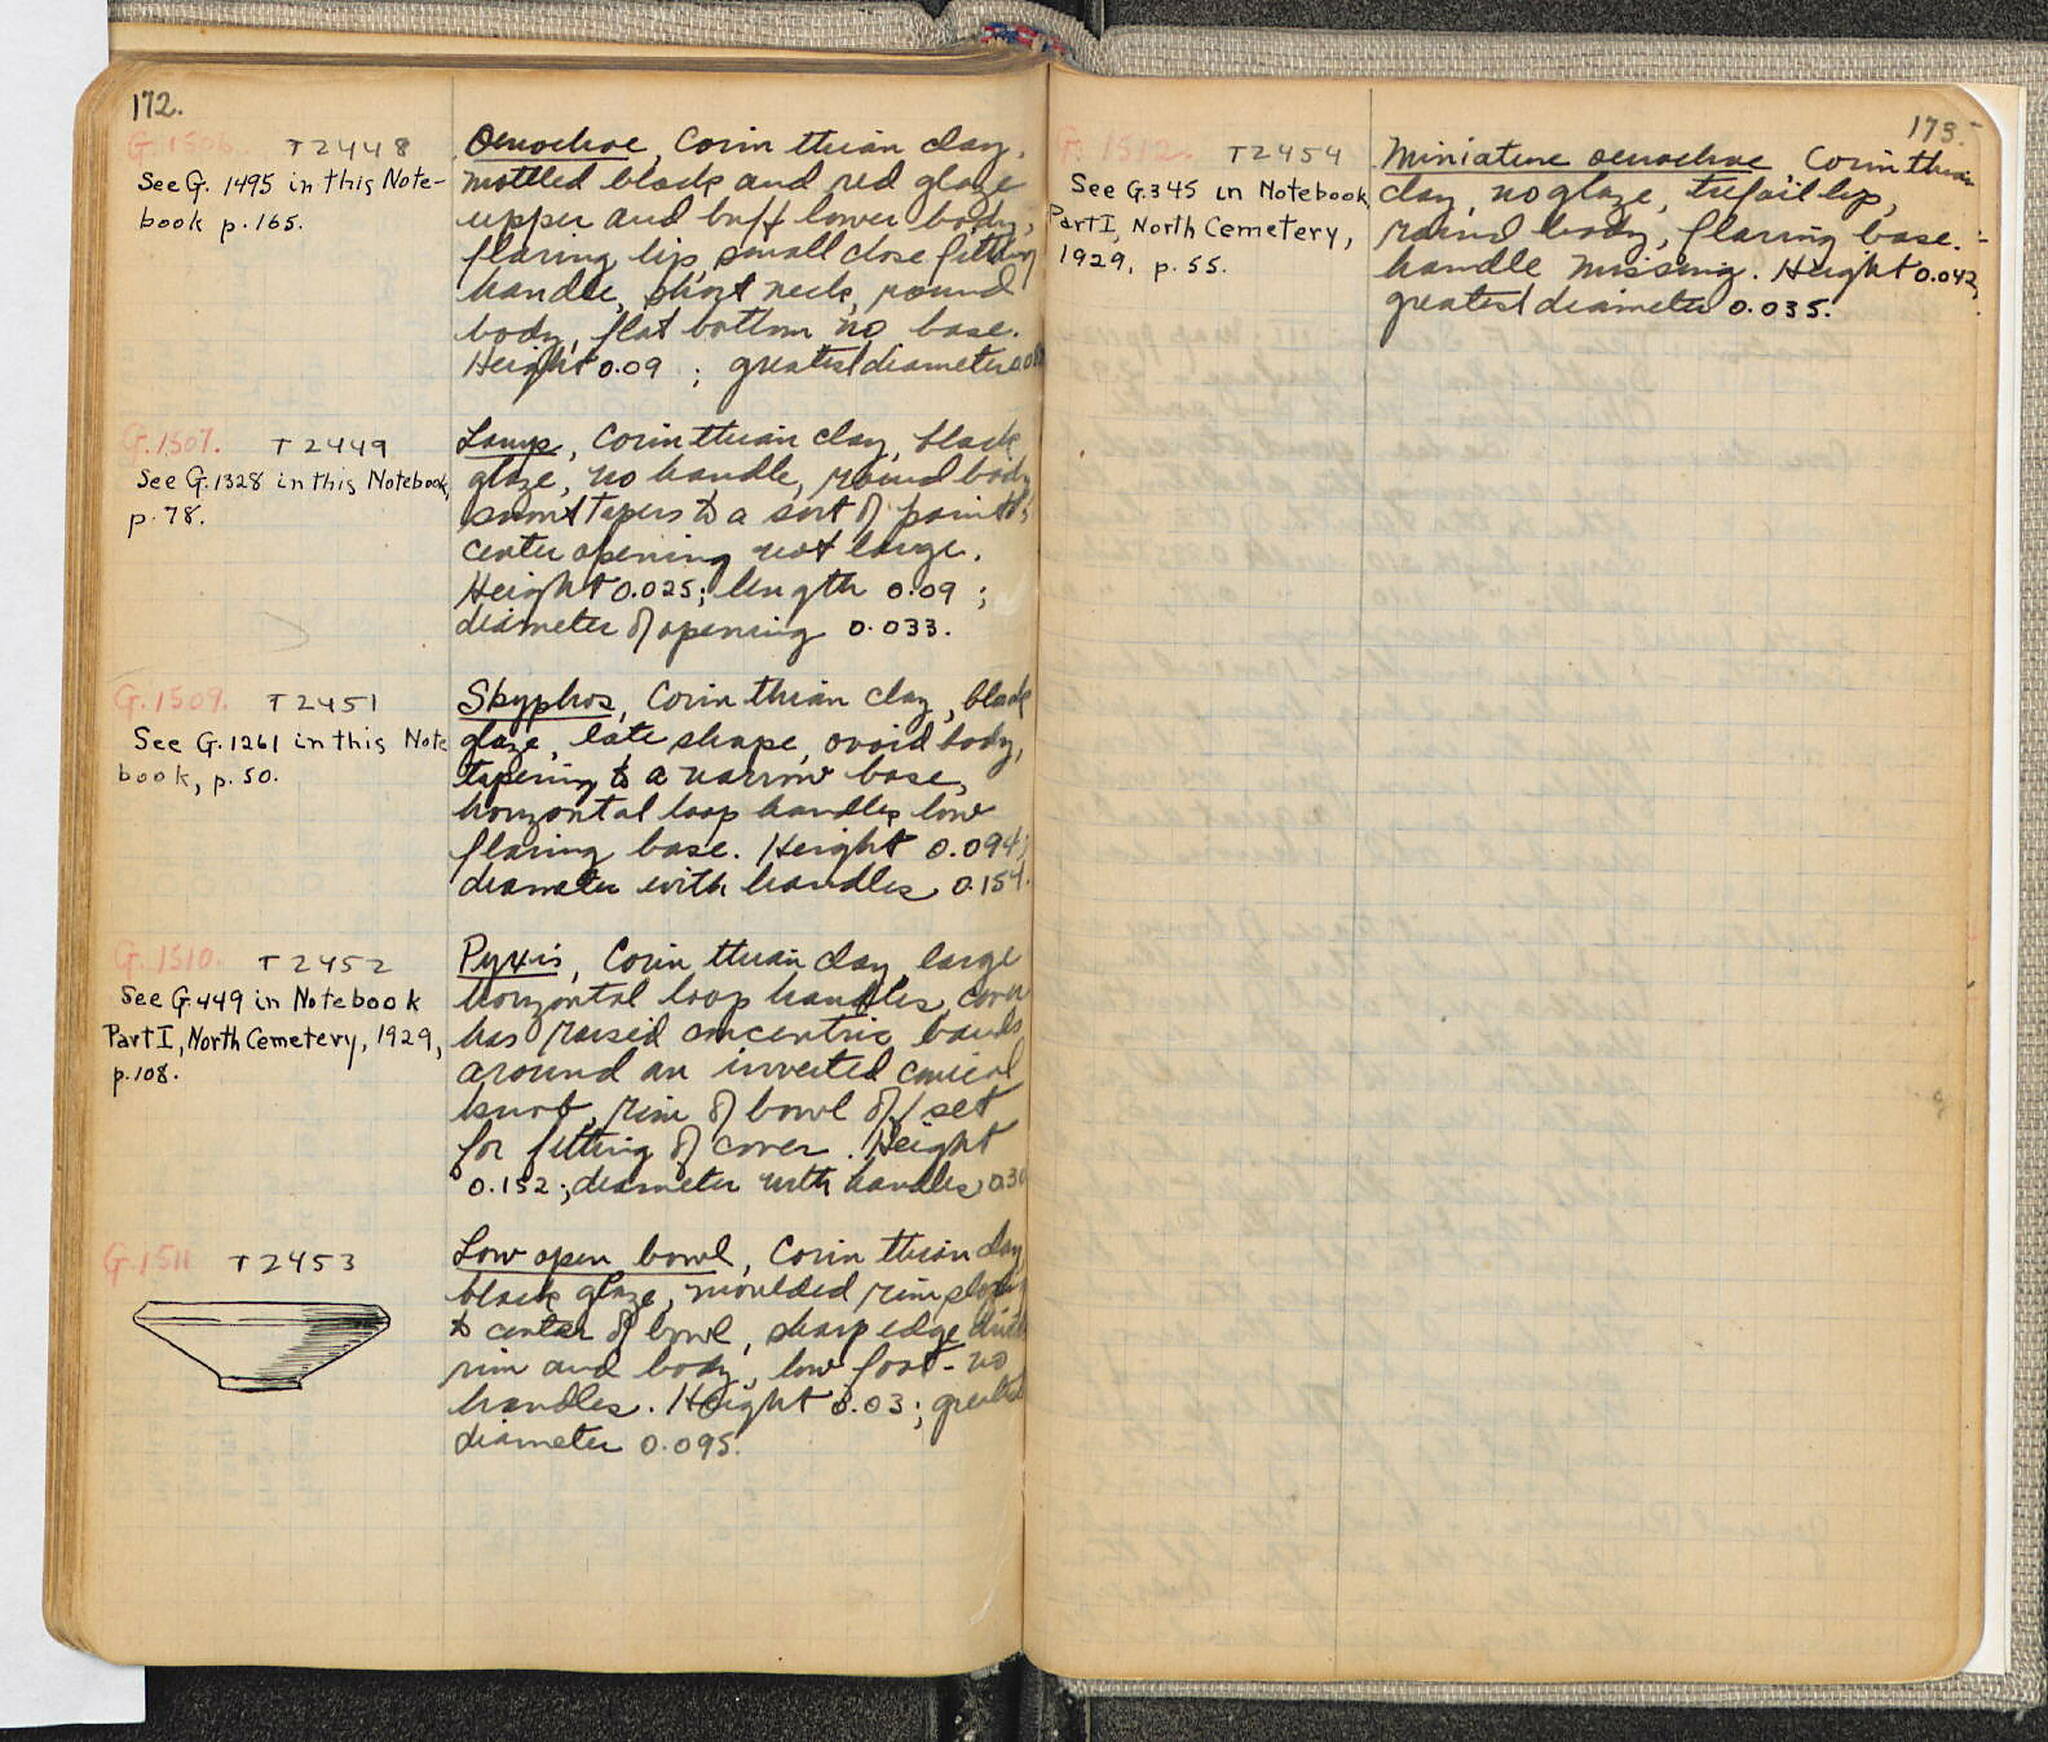 172.
G. 1506. T 2448
See G. 1495 in this Note-
book p. 165.
Oenochoe, Corinthian clay,
mottled black and red glaze
upper and buff lower body,
flaring lip, small close fitting
handle, short neck, round
body, flat bottom no base.
Height 0.09 ; greatest diameter
G. 1507. T 2449
See G. 1328 in this Notebook,
p. 78.
Lamp, Corinthian clay, black
glaze, no handle, round body
snout tapers to a sort of point;
center opening not large.
Height 0.025; length 0.09 ;
diameter of opening 0.033.
G. 1509. T 2451
See G. 1261 in this Note
book, p. 50.
Skyphos, Corinthian clay, black
glaze, late shape, ovoid body,
tapering to a narrow base,
horizontal loop handles low
flaring base. Height 0.094;
diameter with handles 0.154.
G. 1510. T 2452
See G. 449 in Notebook
Part I, North Cemetery, 1929,
p. 108.
Pyxis, Corinthian clay, large
horizontal loop handles, cover
has raised concentric bands
around an inverted conical
knob, rim of bowl offset
for fitting of cover. Height
0.152; diameter with handles
G. 1511 T 2453
Low open bowl, Corinthian clay
black glaze, moulded rim sloping
to center of bowl, sharp edge
rim and body, low foot - no
handles. Height 0.03; greatest
diameter 0.095.
173.
G. 1512. T 2454
See G. 345 in Notebook,
Part I, North Cemetery,
1929, p. 55.
Miniature oenochoe Corinthian
clay, no glaze, trefoil lip,
round body, flaring base.
handle missing. Height 0.042,
greatest diameter 0.035.